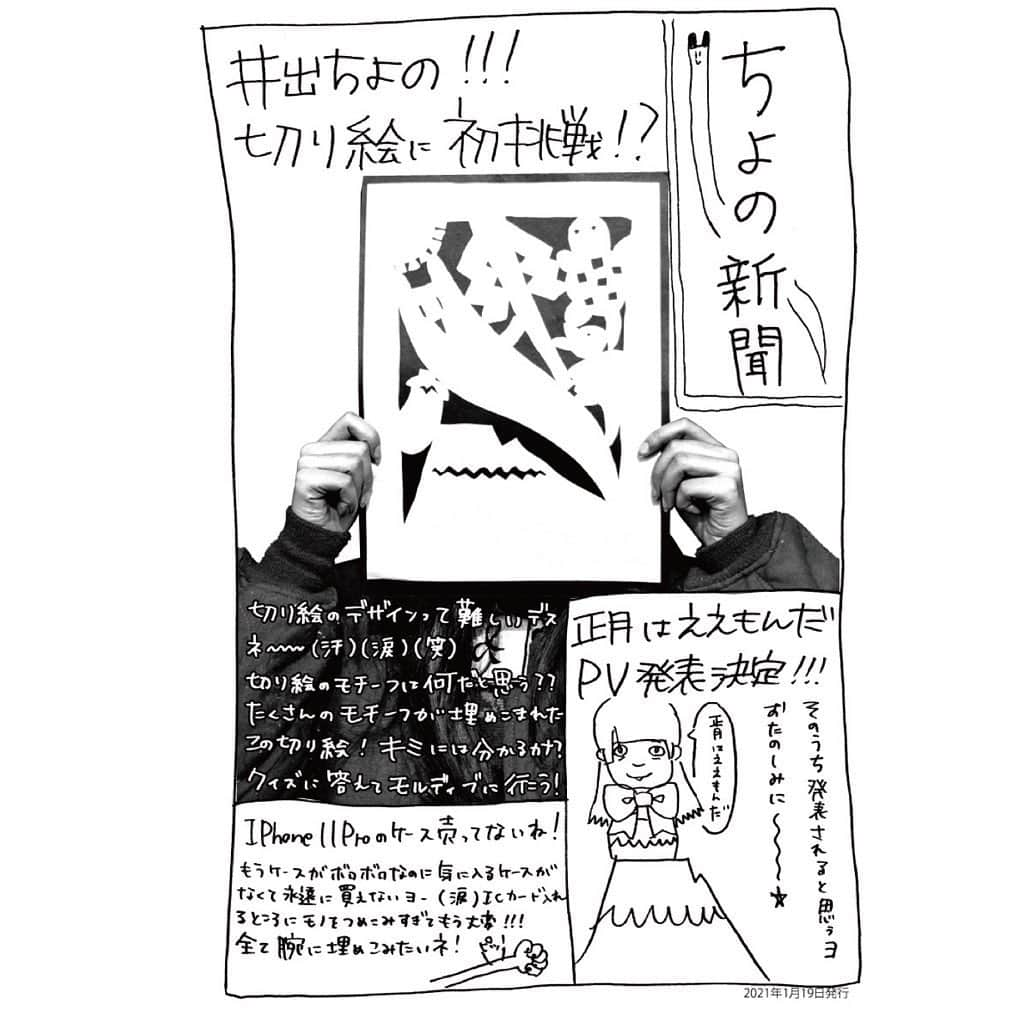 ちよの新聞
井出ちよの!!!
切り絵に初挑戦!?
切り絵のデザインって難しいデス
ネ〜〜(汗)(涙)(笑)
切り絵のモチーフは何だと思う??
たくさんのモチーフが埋めこまれた
この切り絵!キミには分かるかナ?
クイズに答えてモルディブに行こう!
正月はええもんだ
PV発表決定!!!
そのうち発表されると思うヨ
おたのしみに〜〜〜☆
正月はええもんだ
IPhone11Proのケース売ってないね!
もうケースがボロボロなのに気に入るケースが
なくて永遠に買えないヨー(涙)ICカード入れ
るところにモノをつめこみすぎてもう大変!!!
全て腕に埋めこみたいネ!
ピッ!
2021年1月19日発行